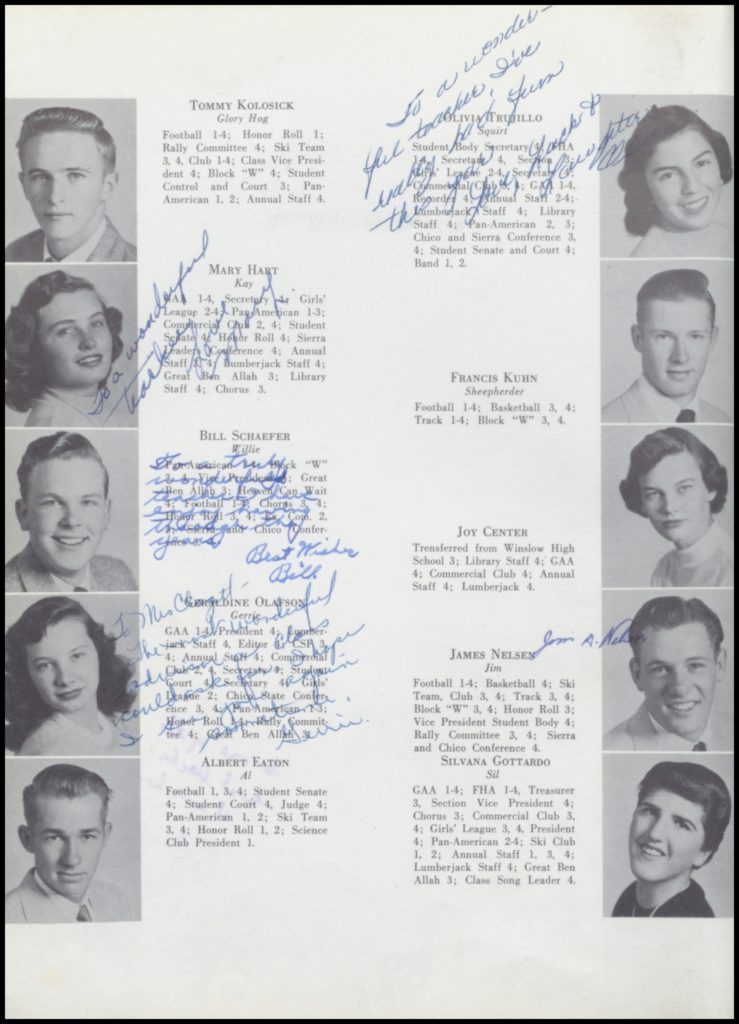 TOMMY KOLOSICK
Glory Hog
Football 1-4; Honor Roll 1;
Rally Committee 4; Ski Team
3, 4, Club 1-4; Class Vice Presi-
dent 4; Block "W" 4; Student
Control and Court 3; Pan-
American 1, 2; Annual Staff 4.
MARY HART
Kay
GAA 1-4, Secretary 4; Girls'
League 2-4; Pan-American 1-3;
Commercial Club 2, 4; Student
Senate 4; Honor Roll 4; Sierra
Leaders Conference 4; Annual
Staff 3, 4; Bumberjack Staff 4;
Great Ben Allah 3; Library
Staff 4; Chorus 3.
To a wonderful
teacher
BILL SCHAEFER
Willie
Pan-American Block "W"
3, 4, Vice President Great
Ben Allah 3; Heaven Can Wait
4; Football 1-4; Chorus 3, 4;
Honor Roll 3, 4; Ex. Com. 2,
3; Sierra and Chico Confer-
ence
To a truly
wonderful
teacher
years
Best Wishes
Bill
GERALDINE OLAFSON
Gerrie
GAA 1-4, President 4; Lumber-
jack Staff 4, Editor 4; CSF 3,
4; Annual Staff 4; Commercial
Club 2, 4, Secretary 4; Student
Court 4, Secretary 4; Girls'
League 2; Chico State Confer-
ence 3, 4; Pan-American 1-3;
Honor Roll 1-4; Rally Commit-
tee 4; Great Ben Allah 3.
To Mrs
The most wonderful
advisor a class
could ask for. I hope
I see again
Gerrie.
ALBERT EATON
Al
Football 1, 3, 4; Student Senate
4; Student Court 4, Judge 4;
Pan-American 1, 2; Ski Team
3, 4; Honor Roll 1, 2; Science
Club President 1.
To a wonder-
ful teacher, I've
really had fun
this year
Love, Luck &
OLIVIA TRUJILLO
Squirt
Student Body Secretary 4; FHA
1-4, Secretary 4, Section 3;
Girls' League 2-4, Secretary 4;
Commercial Club 3, 4; GAA 1-4,
Recorder 4; Annual Staff 2-4;
Lumberjack Staff 4; Library
Staff 4; Pan-American 2, 3;
Chico and Sierra Conference 3,
4; Student Senate and Court 4;
Band 1, 2.
FRANCIS KUHN
Sheepherder
Football 1-4; Basketball 3, 4;
Track 1-4; Block "W" 3, 4.
JOY CENTER
Trensferred from Winslow High
School 3; Library Staff 4; GAA
4; Commercial Club 4; Annual
Staff 4; Lumberjack 4.
JAMES NELSEN
Jim A. Nelsen
Jim
Football 1-4; Basketball 4; Ski
Team, Club 3, 4; Track 3, 4;
Block "W" 3, 4; Honor Roll 3;
Vice President Student Body 4;
Rally Committee 3, 4; Sierra
and Chico Conference 4.
SILVANA GOTTARDO
Sil
GAA 1-4; FHA 1-4, Treasurer
3, Section Vice President 4;
Chorus 3; Commercial Club 3,
4; Girls' League 3, 4, President
4; Pan-American 2-4; Ski Club
1, 2; Annual Staff 1, 3, 4;
Lumberjack Staff 4; Great Ben
Allah 3; Class Song Leader 4.